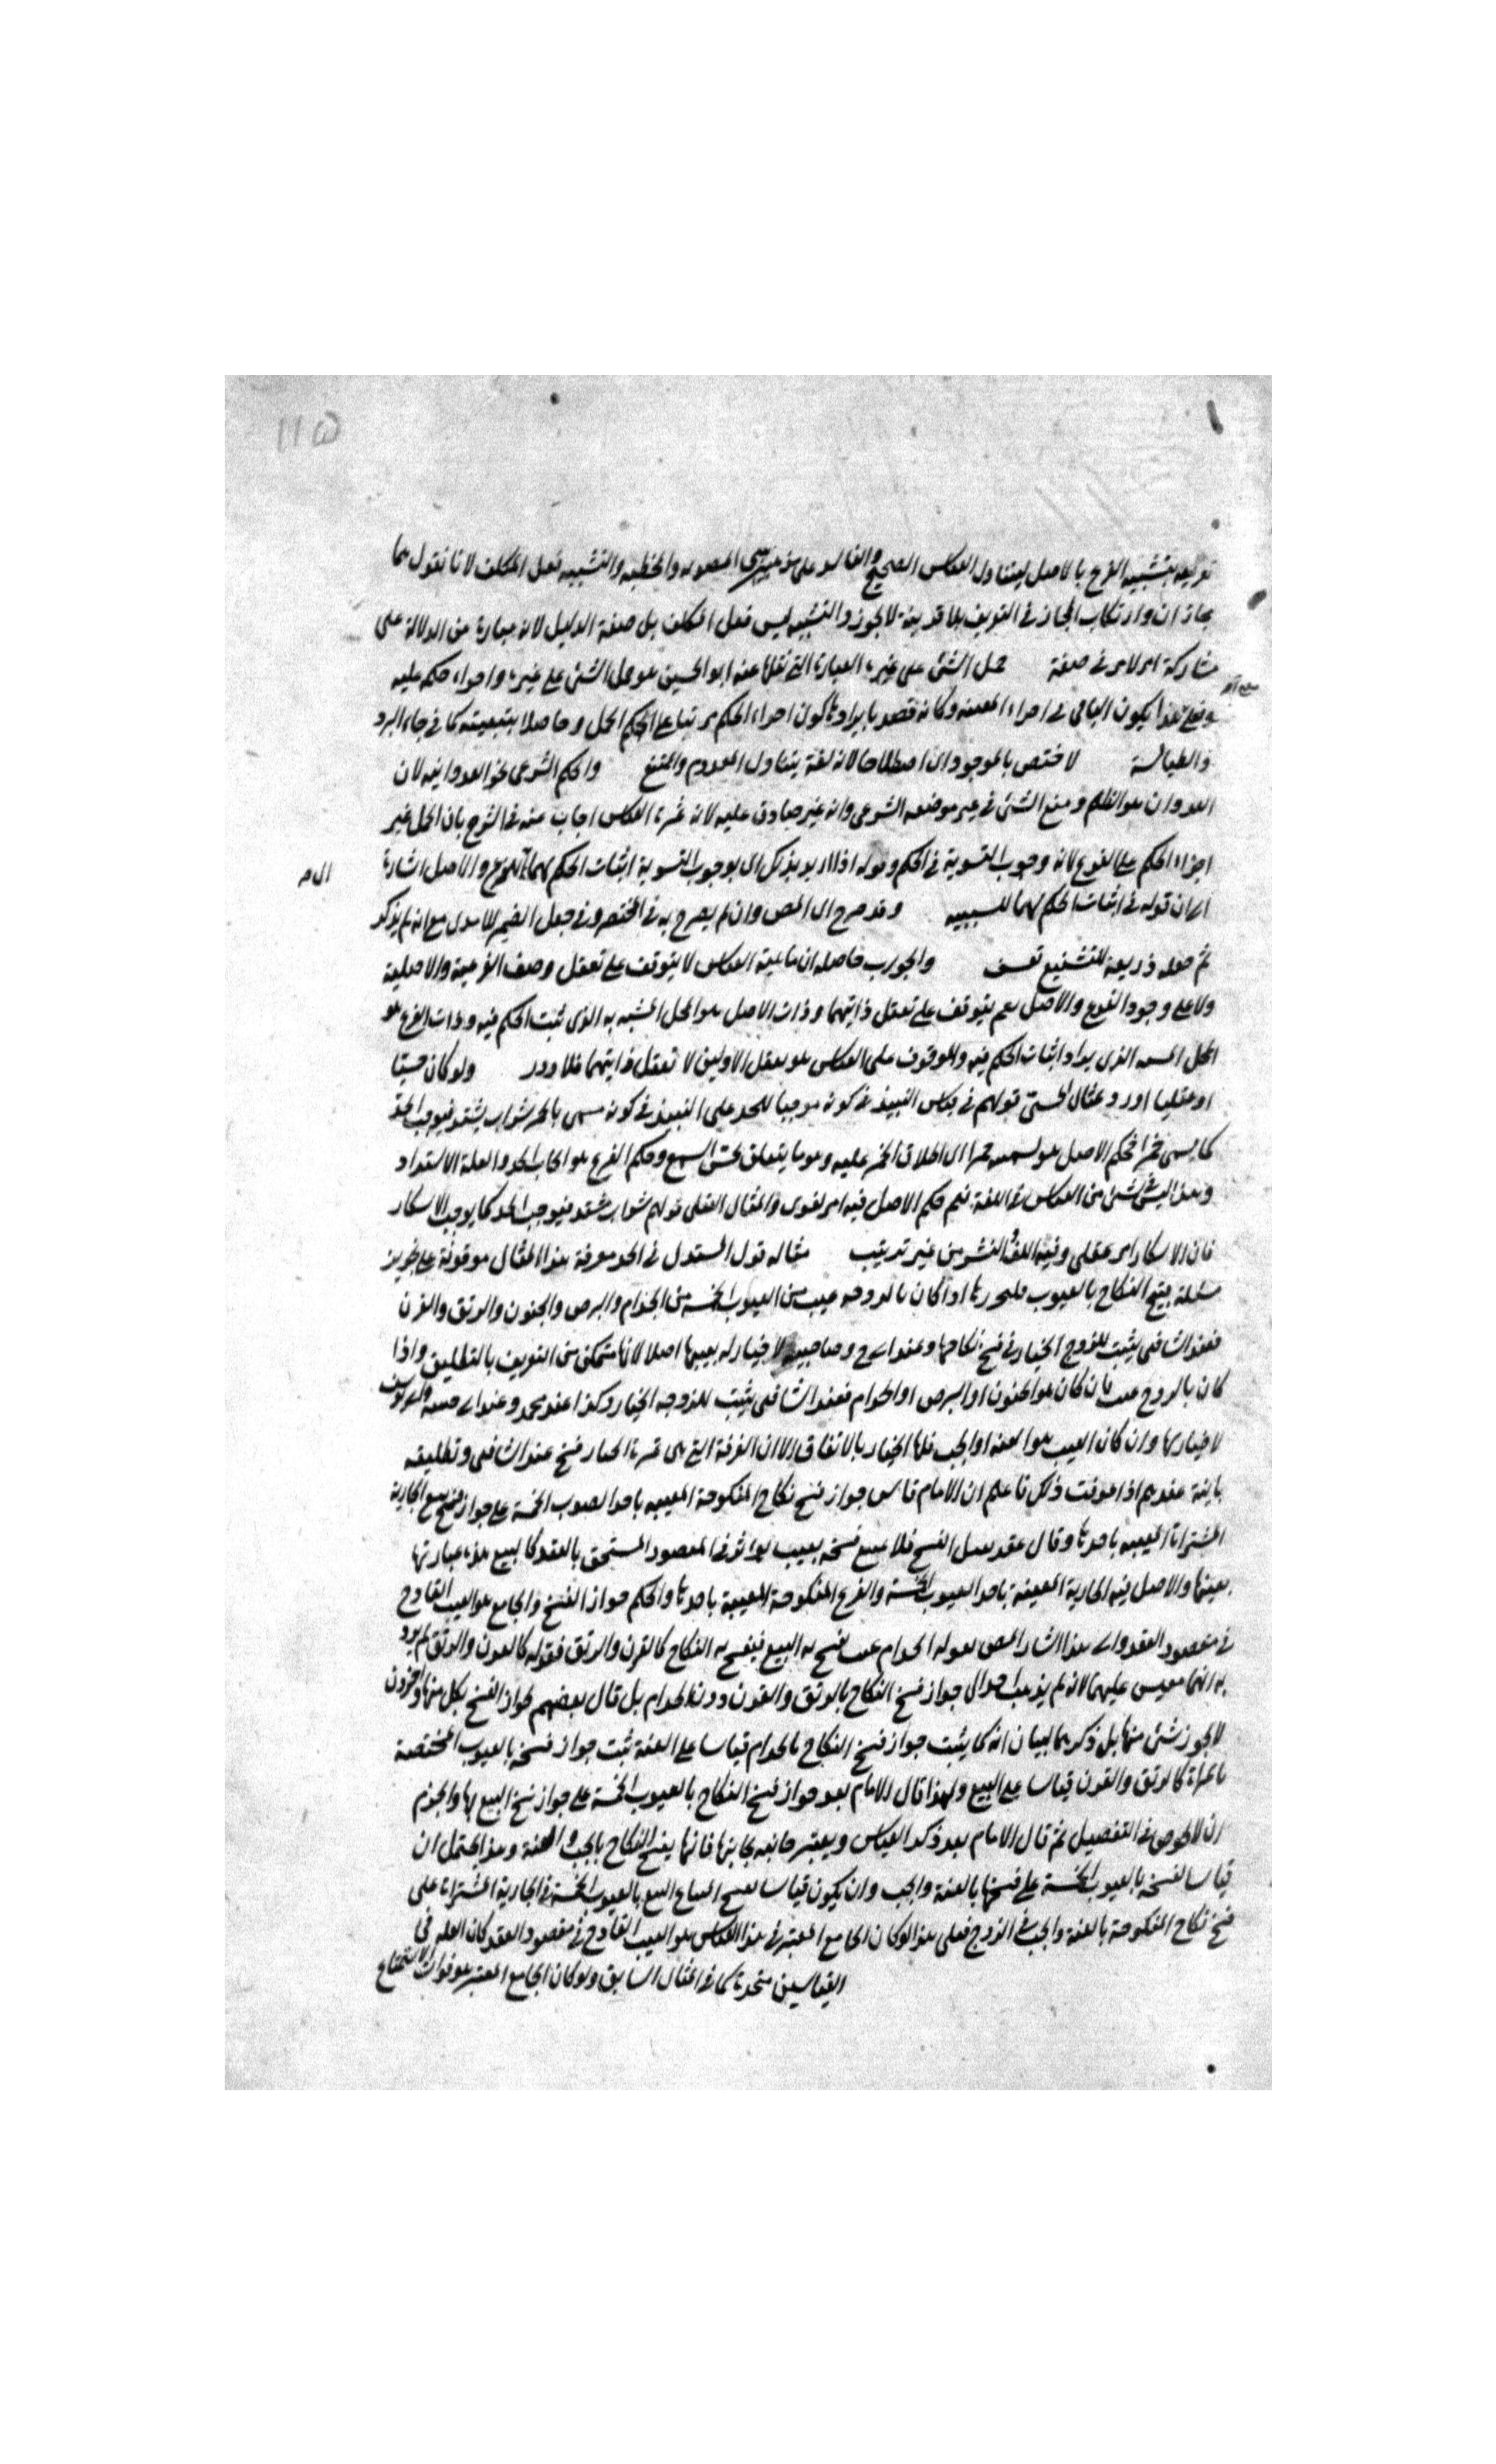 ١١٥
تعريفه بتشبيه الفرع بالاصل ليتناول القياس الصحيح والفاسد على مذهبى المصوبه والمخطئه والتشبيه فعل المكلف لانا نقول هما
مجازان وارتكاب المجاز فى التعريف بلا قرينة لا يجوز والتشبيه ليس فعل المكلف بل صفة الدليل لانه عبارة عن الدلالة على
مشاركة امر لامر فى صفة حمل الشئ على غيره العبارة التى نقلها عنه ابو الحسين هو حمل الشئ على غيره واجراء حكمه عليه
وعلى هذا يكون الباقى فى اجراء وكانه قصد بايرادها كون اجراء الحكم مرتبا على الحمل وحاصلا بتبعيته كما فى جاء البرد
والطيالسة لاختص بالموجود اى اصطلاحا لانه لغة يتناول المعدوم والممتنع والحكم الشرعى نحو العدوانيه لان
العدوان هو الظلم وضع الشئ فى غير موضعه الشرعى وانه غير صادق عليه لانه ثمرة القياس اجاب عنه فى الشرح بان الحمل غير
اجراء الحكم على الفرع لانه وجوب التسوية فى الحكم وقوله اذا اريد بذلك اى بوجوب التسوية اثبات الحكم لهما اى للفرع والاصل اشارة
الى ان قوله فى اثبات الحكم لهما للسببيه وقد صرح المص وان لم يصرح به فى المختصر وفى جعل الضمير للآمدى مع انه لم يذكر
ثم جعله ذريعة للتشنيع تعسف والجواب حاصله ان ماهية القياس لا يتوقف على تعقل وصف الفرعية والاصلية
ولا على وجود الفرع والاصل نعم يتوقف على تعقل ذاتيهما وذات الاصل هو المحل المشبه به الذى ثبت الحكم فيه وذات الفرع هو
المحل المشبه الذى يراد اثبات الحكم فيه والموقوف على القياس هو تعقل الاولين لا تعقل ذاتيهما فلا دور ولو كان حسيا
او عقليا اورد مثال الحسى قولهم فى قياس النبيذ فى كونه موجبا للحد على النبيذ فى كونه مسمى بالخمر شراب يشتد فيوجب الحد
كما يسمى خمرا فحكم الاصل هو تسميته خمرا اى اطلاق الخمر عليه وهو ما يتعلق بحس السمع وحكم الفرع هو ايجاب الحد والعلة الاشتداد
وهذا ليس بشئ من القياس فى اللغة نعم حكم الاصل فيه امر لغوى والمثال العقلى قولهم شراب مشتد فيوجب الحد كما يوجب الاسكار
فان الاسكار امر عقلى وفيه اللف والنشر من غير ترتيب مثاله قول المستدل فى الحد معرفة هذا المثال موقوفة على تحرير
مسئلة فسخ النكاح بالعيوب فلنحررها اذا كان بالزوجه عيب من العيوب الخمسه من الجذام والبرص والجنون والرتق والقرن
فعند الشافعى يثبت للزوج الخيار فى فسخ نكاحها وعند ابى ح وصاحبيه لا خيار له بعيبها اصلا لانه متمكن من التفريق بالتطليق واذا
كان بالزوج عيب فان كان هو الجنون او البرص او الجذام فعند الشافعى يثبت للزوجه الخيار وكذا عند محمد وعند ابى حنيفة وابى يوسف
لا خيار لها وان كان العيب هو العنه او الجب فلها الخيار بالاتفاق الا ان الفرقة التى هى ثمرة الخيار فسخ عند الشافعى وتطليقه
باينة عندهم اذا عرفت ذلك فاعلم ان الامام قاس جواز فسخ نكاح المنكوحة المعيبه باحد العيوب الخمسة على جواز فسخ بيع الجارية
المشتراة المعيبه باحدها وقال عقد يقبل الفسخ فلا يمتنع فسخه بعيب يؤثر فى المقصود المستحق بالعقد كالبيع هذه عبارتها
بعينها والاصل فيه الجارية المعيبة باحد العيوب الخمسة والفرع المنكوحة المعيبة باحدها والحكم جواز الفسخ والجامع هو العيب القادح
فى مقصود العقد والى هذا اشار المص بقوله الجذام عيب يفسخ به البيع فيفسخ به النكاح كالقرن والرتق فقوله كالقرن والرتق لم يرد
به انهما مقيس عليهما لانه لم يذهب احد الى جواز فسخ النكاح بالرتق والقرن دون الجذام بل قال بعضهم بجواز الفسخ بكل منهما واخرون
لا يجوز شئ منها بل ذكرهما لبيان انه كما يثبت جواز فسخ النكاح بالجذام قياسا على العنة ثبت جواز فسخه بالعيوب المختصة
بالمراة كالرتق والقرن قياسا على البيع ولهذا قال الامام بعد جواز فسخ النكاح بالعيوب الخمسة على جواز فسخ البيع بها والجزم
ان لا يخوض فى التفصيل ثم قال الامام بعد ذكر القياس ويعتبر جانبه بجانبها فانها يفسخ النكاح بالجب والعنة وهذا يحتمل ان
قياسا لفسخه بالعيوب الخمسة على فسخها بالعنة والجب وان يكون قياسا لفسخ البيع بالعيوب الخمسة فى الجارية المشتراة على
فسخ نكاح المنكوحة بالعنة والجب فى الزوج فعلى هذا لو كان الجامع المعتبر فى هذا القياس هو العيب القادح فى مقصود العقد كان العله فى
القياسين متحدة كما فى المثال السابق ولو كان الجامع المعتبر هو فوات الاستمتاع